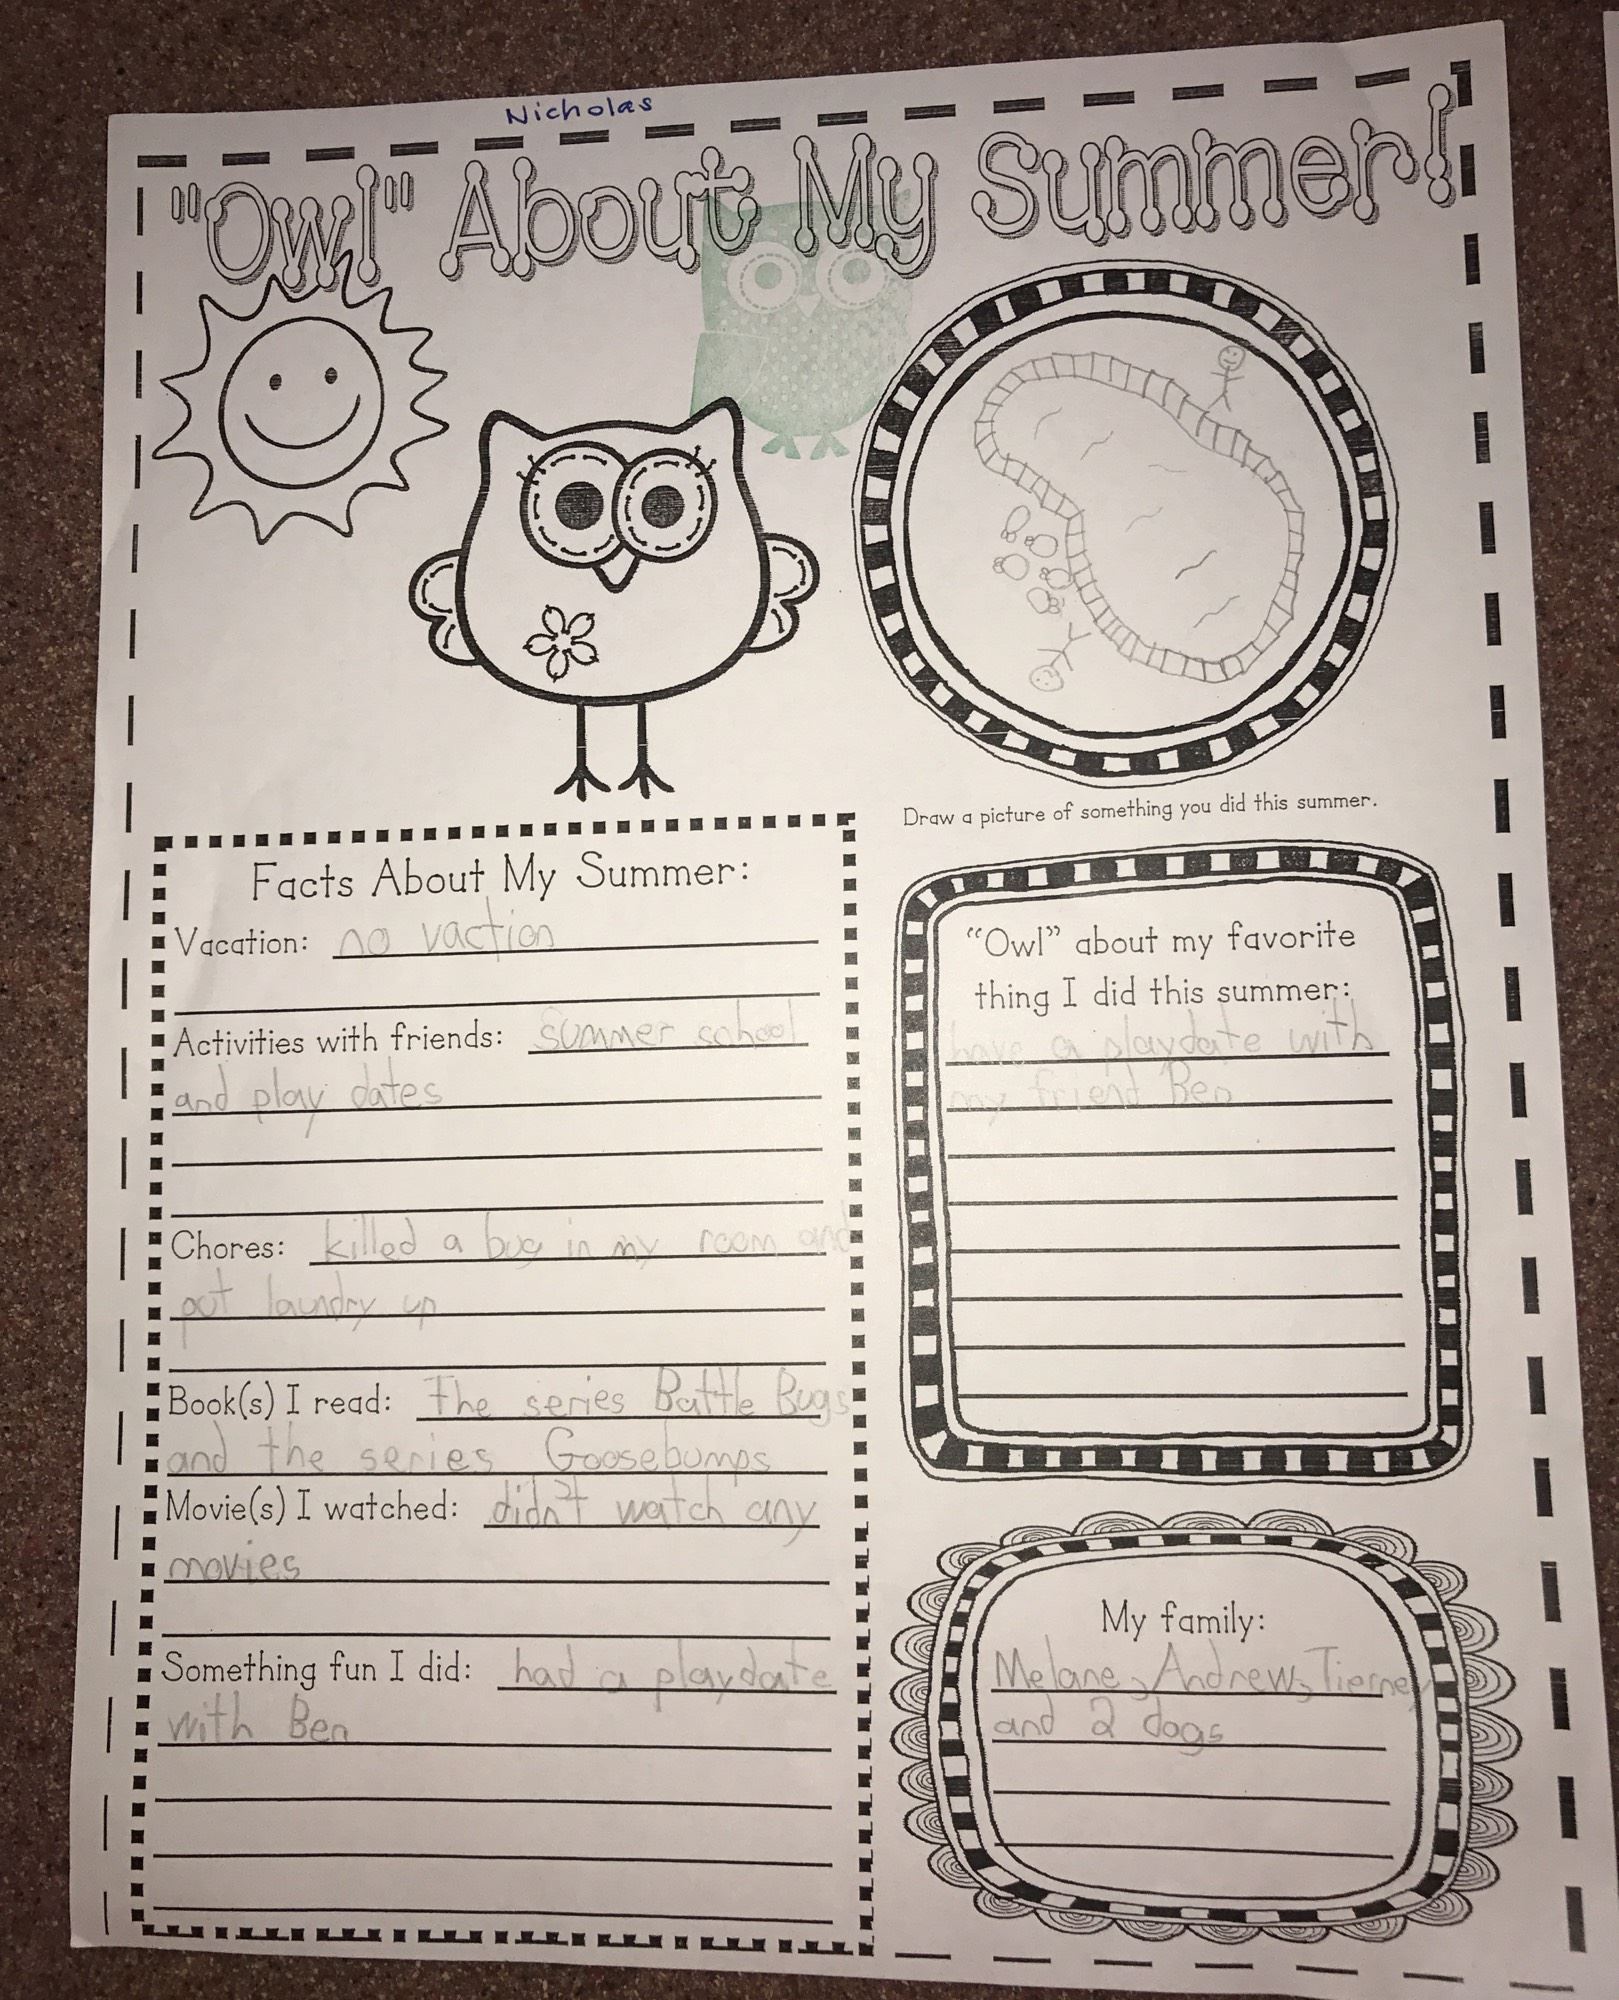 Nicholas
"Owl" About My Summer!
Draw a picture of something you did this summer.
Facts About My Summer:
Vacation: no vaction
Activities with friends: summer school
and play dates
Chores: killed a bug in my room and
put laundry up
Book(s) I read: The series Battle Bugs
and the series Goosebumps
Movie(s) I watched: didn't watch any
movies
Something fun I did: had a playdate
with Ben
"Owl" about my favorite
thing I did this summer:
have a playdate with
my friend Ben
My family:
Melane, Andrew, Tierney
and 2 dogs